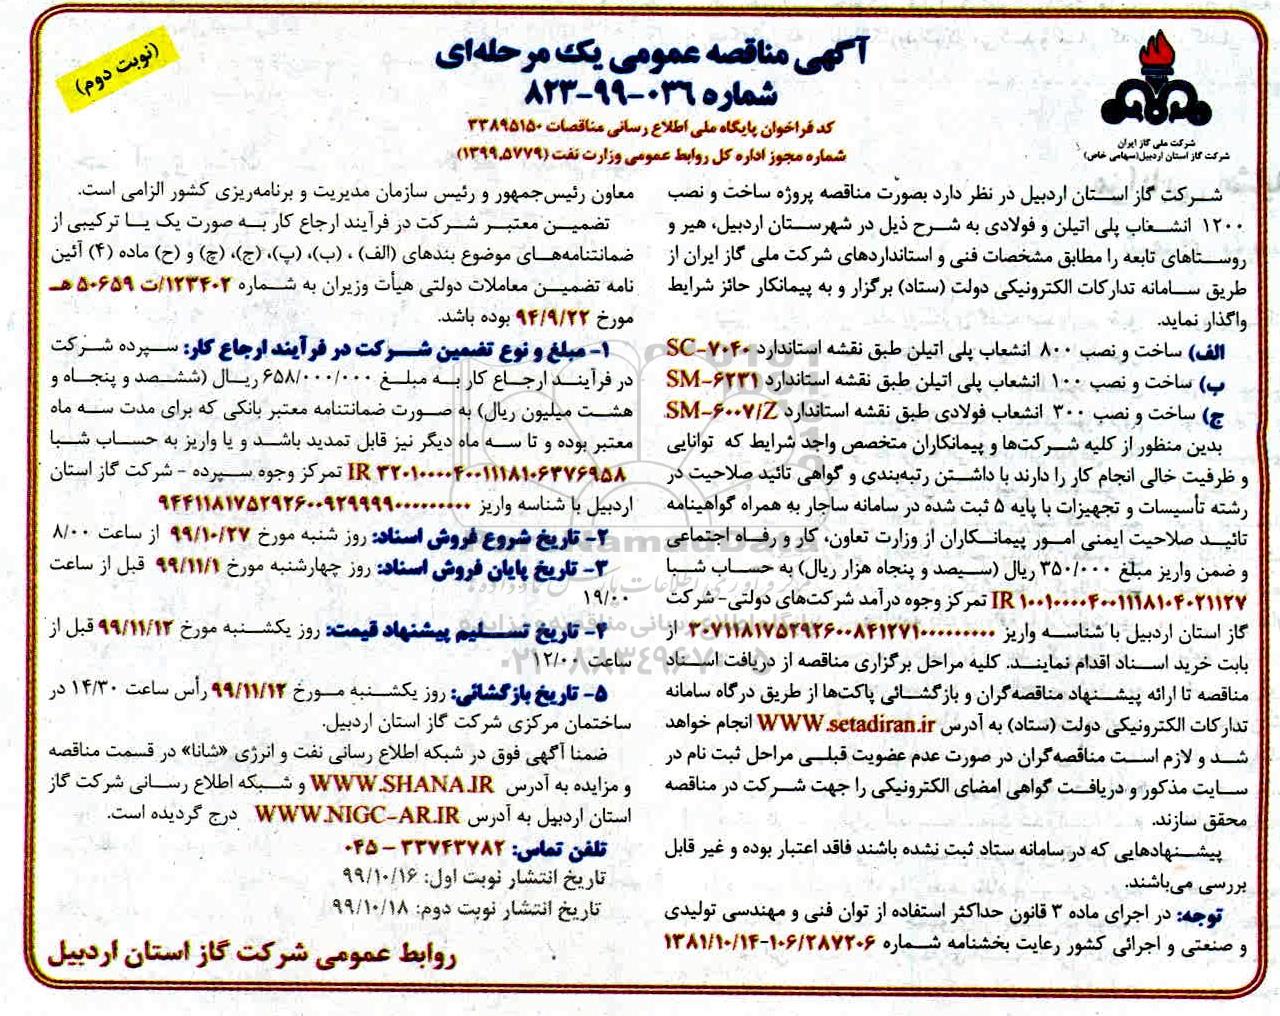 (نوبت دوم)
آگهی مناقصه عمومی یک مرحله‌ای
شماره ۰۳۶-۹۹-۸۲۳
کد فراخوان پایگاه ملی اطلاع رسانی مناقصات ۳۳۸۹۵۱۵۰
شماره مجوز اداره کل روابط عمومی وزارت نفت (۱۳۹۹.۵۷۷۹)
شرکت ملی گاز ایران
شرکت گاز استان اردبیل(سهامی خاص)
شرکت گاز استان اردبیل در نظر دارد بصورت مناقصه پروژه ساخت و نصب
۱۲۰۰ انشعاب پلی اتیلن و فولادی به شرح ذیل در شهرستان اردبیل، هیر و
روستاهای تابعه را مطابق مشخصات فنی و استانداردهای شرکت ملی گاز ایران از
طریق سامانه تدارکات الکترونیکی دولت (ستاد) برگزار و به پیمانکار حائز شرایط
واگذار نماید.
الف) ساخت و نصب ۸۰۰ انشعاب پلی اتیلن طبق نقشه استاندارد SC-۷۰۴۰
ب) ساخت و نصب ۱۰۰ انشعاب پلی اتیلن طبق نقشه استاندارد SM-۶۲۳۱
ج) ساخت و نصب ۳۰۰ انشعاب فولادی طبق نقشه استاندارد SM-۶۰۰۷/Z
بدین منظور از کلیه شرکت‌ها و پیمانکاران متخصص واجد شرایط که توانایی
و ظرفیت خالی انجام کار را دارند با داشتن رتبه‌بندی و گواهی تائید صلاحیت در
رشته تأسیسات و تجهیزات با پایه ۵ ثبت شده در سامانه ساجار به همراه گواهینامه
تائید صلاحیت ایمنی امور پیمانکاران از وزارت تعاون، کار و رفاه اجتماعی
و ضمن واریز مبلغ ۳۵۰/۰۰۰ ریال (سیصد و پنجاه هزار ریال) به حساب شبا
IR ۱۰۰۱۰۰۰۰۴۰۰۱۱۱۸۱۰۴۰۲۱۱۲۷ تمرکز وجوه درآمد شرکت‌های دولتی-شرکت
گاز استان اردبیل با شناسه واریز ۳۰۷۱۱۸۱۷۵۲۹۲۶۰۰۸۴۱۲۷۱۰۰۰۰۰۰۰۰۰۰ از
بابت خرید اسناد اقدام نمایند. کلیه مراحل برگزاری مناقصه از دریافت اسناد
مناقصه تا ارائه پیشنهاد مناقصه‌گران و بازگشائی پاکت‌ها از طریق درگاه سامانه
تدارکات الکترونیکی دولت (ستاد) به آدرس WWW.setadiran.ir انجام خواهد
شد و لازم است مناقصه‌گران در صورت عدم عضویت قبلی مراحل ثبت نام در
سایت مذکور و دریافت گواهی امضای الکترونیکی را جهت شرکت در مناقصه
محقق سازند.
پیشنهادهایی که در سامانه ستاد ثبت نشده باشند فاقد اعتبار بوده و غیر قابل
بررسی می‌باشند.
توجه: در اجرای ماده ۳ قانون حداکثر استفاده از توان فنی و مهندسی تولیدی
و صنعتی و اجرائی کشور رعایت بخشنامه شماره ۱۰۶/۲۸۷۲۰۶-۱۳۸۱/۱۰/۱۴
معاون رئیس‌جمهور و رئیس سازمان مدیریت و برنامه‌ریزی کشور الزامی است.
تضمین معتبر شرکت در فرآیند ارجاع کار به صورت یک یا ترکیبی از
ضمانتنامه‌های موضوع بندهای (الف) ، (ب)، (پ)، (ج)، (چ) و (ح) ماده (۴) آئین
نامه تضمین معاملات دولتی هیأت وزیران به شماره ۱۲۳۴۰۲/ت ۵۰۶۵۹ هـ
مورخ ۹۴/۹/۲۲ بوده باشد.
۱- مبلغ و نوع تضمین شرکت در فرآیند ارجاع کار: سپرده شرکت
در فرآیند ارجاع کار به مبلغ ۶۵۸/۰۰۰/۰۰۰ ریال (ششصد و پنجاه و
هشت میلیون ریال) به صورت ضمانتنامه معتبر بانکی که برای مدت سه ماه
معتبر بوده و تا سه ماه دیگر نیز قابل تمدید باشد و یا واریز به حساب شبا
IR ۳۲۰۱۰۰۰۰۴۰۰۱۱۱۸۱۰۶۳۷۶۹۵۸ تمرکز وجوه سپرده - شرکت گاز استان
اردبیل با شناسه واریز ۹۴۴۱۱۸۱۷۵۲۹۲۶۰۰۹۲۹۹۹۹۰۰۰۰۰۰۰۰۰۰
۲- تاریخ شروع فروش اسناد: روز شنبه مورخ ۹۹/۱۰/۲۷ از ساعت ۸/۰۰
۳- تاریخ پایان فروش اسناد: روز چهارشنبه مورخ ۹۹/۱۱/۱ قبل از ساعت
۱۹/۰۰
۴- تاریخ تسلیم پیشنهاد قیمت: روز یکشنبه مورخ ۹۹/۱۱/۱۲ قبل از
ساعت ۱۲/۰۰
۵- تاریخ بازگشائی: روز یکشنبه مورخ ۹۹/۱۱/۱۲ رأس ساعت ۱۴/۳۰ در
ساختمان مرکزی شرکت گاز استان اردبیل.
ضمنا آگهی فوق در شبکه اطلاع رسانی نفت و انرژی «شانا» در قسمت مناقصه
و مزایده به آدرس WWW.SHANA.IR و شبکه اطلاع رسانی شرکت گاز
استان اردبیل به آدرس WWW.NIGC-AR.IR درج گردیده است.
تلفن تماس: ۳۳۷۴۳۷۸۲ – ۰۴۵
تاریخ انتشار نوبت اول: ۹۹/۱۰/۱۶
تاریخ انتشار نوبت دوم: ۹۹/۱۰/۱۸
روابط عمومی شرکت گاز استان اردبیل